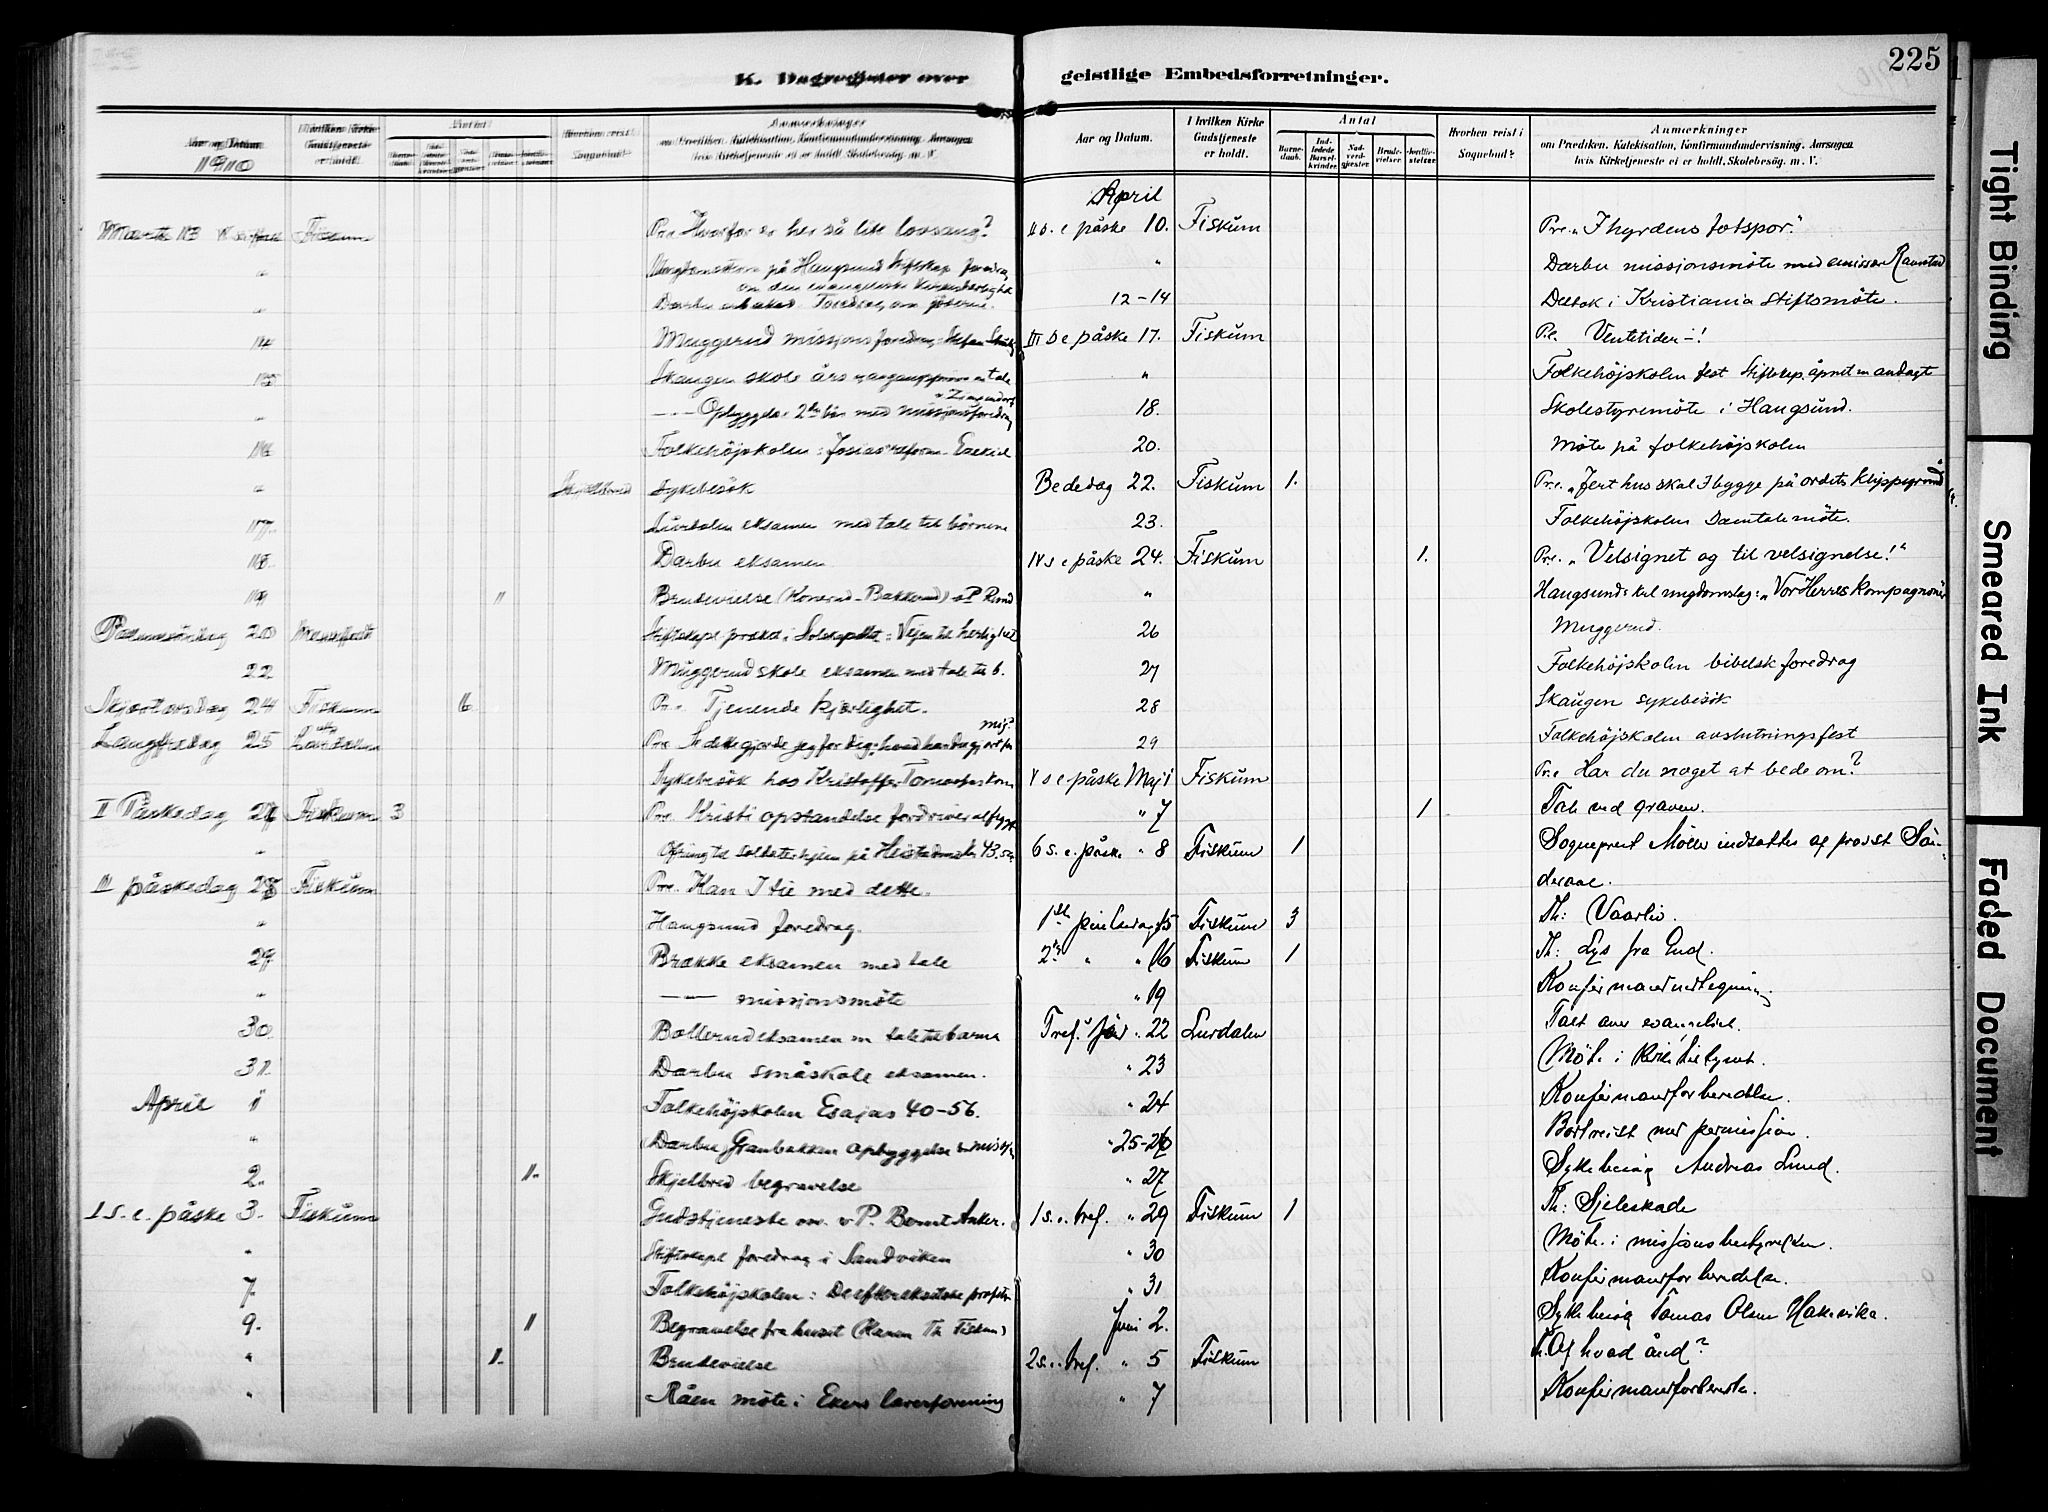 K. Dagregister over geistlige Embedsforretninger.
225
Aar og Datum
1910
I hvilken Kirke Gudstjeneste er holdt.
Antal
Hvorhen reist i Soquebud?
Anmerkninger
om Prædiken, Katekisation, Konfirmandundervisning, Aarsagen
hvis Kirketjeneste ei er holdt, Skolebesøg. m. V.
Marts 13 Fiskum Pr. Hvorfor er her så lite lovsang?
" på Haugsund stiftskap. foredrag
om den evangeliske
" Darbu Foredrag om jøderne.
14 Muggerud missjonsforedrag: Stefan
15 Skaugen skole års tale
" Opbyggelse 2 tim med missjonsforedrag
Folkehöjskolen: Josias' reform. Ezekiel
" Sykebesök
17. Lurdalen eksamen med tale til börnene
18. Darbu eksamen
19 1 Brudevielse (Konrad Bakkerud)
Palmesöndag 20 Stiftskapl. præket: Vejen til herlighet
22 Muggerud skole eksamen med tale til b.
Skjærtorsdag 24 Fiskum 6 Pr. Tjenende kjærlighet.
Langfredag 25 Lurdalen Pr. Se dette gjorde jeg for dig; hvad har du gjort for mig?
Sykebesök hos Kristoffer
II Påskedag 27 Fiskum 3 Pr. Kristi opstandelse fordriver al frygt
" Ofring til soldaterhjem på Heistadmoen 43.50
III påskedag 28 Fiskum Pr. Kan I tie med dette.
" Haugsund foredrag.
29 Brække eksamen med tale
" — missjonsmöte
30 Bollerud eksamen m tale til barna
31. Darbu småskole eksamen.
April 1 Folkehöjskolen Esajas 40-56.
" Darbu, Granbakken opbyggelse
2. 1. Skjelbred begravelse
1 s. e. påske 3. Fiskum Gudstjeneste ov. v. P. Bernt Anker.
" Stiftskapl foredrag i Sandviken
7. Folkehöjskolen: De efterexilske profeter
9. 1 Begravelse fra huset (Karen Th. Fiskum)
" 1. Brudevielse
" Råen möte i Ekers lærerforening
Aar og Datum.
I hvilken Kirke Gudstjeneste er holdt.
Antal
Barnedaab.
Indledede Barselkvinder.
Nadverdgjester.
Brudevielser.
Jordfæstelser.
Hvorhen reist i Soquebud?
Anmærkninger
om Prædiken, Katekisation, Konfirmandundervisning, Aarsagen
hvis Kirketjeneste ei er holdt, Skolebesög. m. V.
April
II s. e påske 10. Fiskum Pr. "I hyrdens fotspor."
" Darbu missionsmöte med emissær Ramstad
12-14 Deltok i Kristiania Stiftsmöte.
III s e påske 17. Fiskum Pr. Ventetider—!
" Folkehöjskolen fest Stiftskap. åpnet m andagt
18. Skolestyremöte i Haugsund.
20. Möte på folkehöjskolen
Bededag 22. Fiskum 1. Pr. "Jert hus skal I bygge på ordets klippegrund"
23. Folkehöjskolen Samtalemöte.
IV s e påske 24. Fiskum 1. Pr. "Velsignet og til velsignelse!"
" Haugsunds ungdomslag: "Vor Herres kompagnoner
26 Muggerud.
27 Folkehöjskolen bibelsk foredrag
28 Skaugen sykebesök
29 Folkehöjskolen avslutningsfest
V s e påske Maj 1 Fiskum Pr. Har du noget at bede om?
" 7 1 Tale ved graven.
6 s. e. påske " 8 Fiskum 1 Sogneprest Möller indsættes af provst Sön-
deraal.
1ste pinsedag 15 Fiskum 3 Th: Vaarliv.
2den " " 16 Fiskum 1 Th: Lys fra Gud.
" 19 Konfirmandudtegning
Tref. " 22 Lurdalen Talt over evangeliet.
" 23 Möte i
" 24 Konfirmandforberedelse.
" 25-26 Bortreist med permission.
" 27 Sykebesög Andreas Lund.
1 s. e. tref. " 29 Fiskum 1 Th: Sjeleskade
" 30 Möte i missionsbestyrelsen.
" 31 Konfirmandforberedelse.
Juni 2. Sykebesög Tomas Olsen Hakavika.
2 s. e. tref. " 5 Fiskum Af hvad ånd?
" 7 Konfirmandforberedelse.
Tight Binding
Smeared Ink
Faded Document